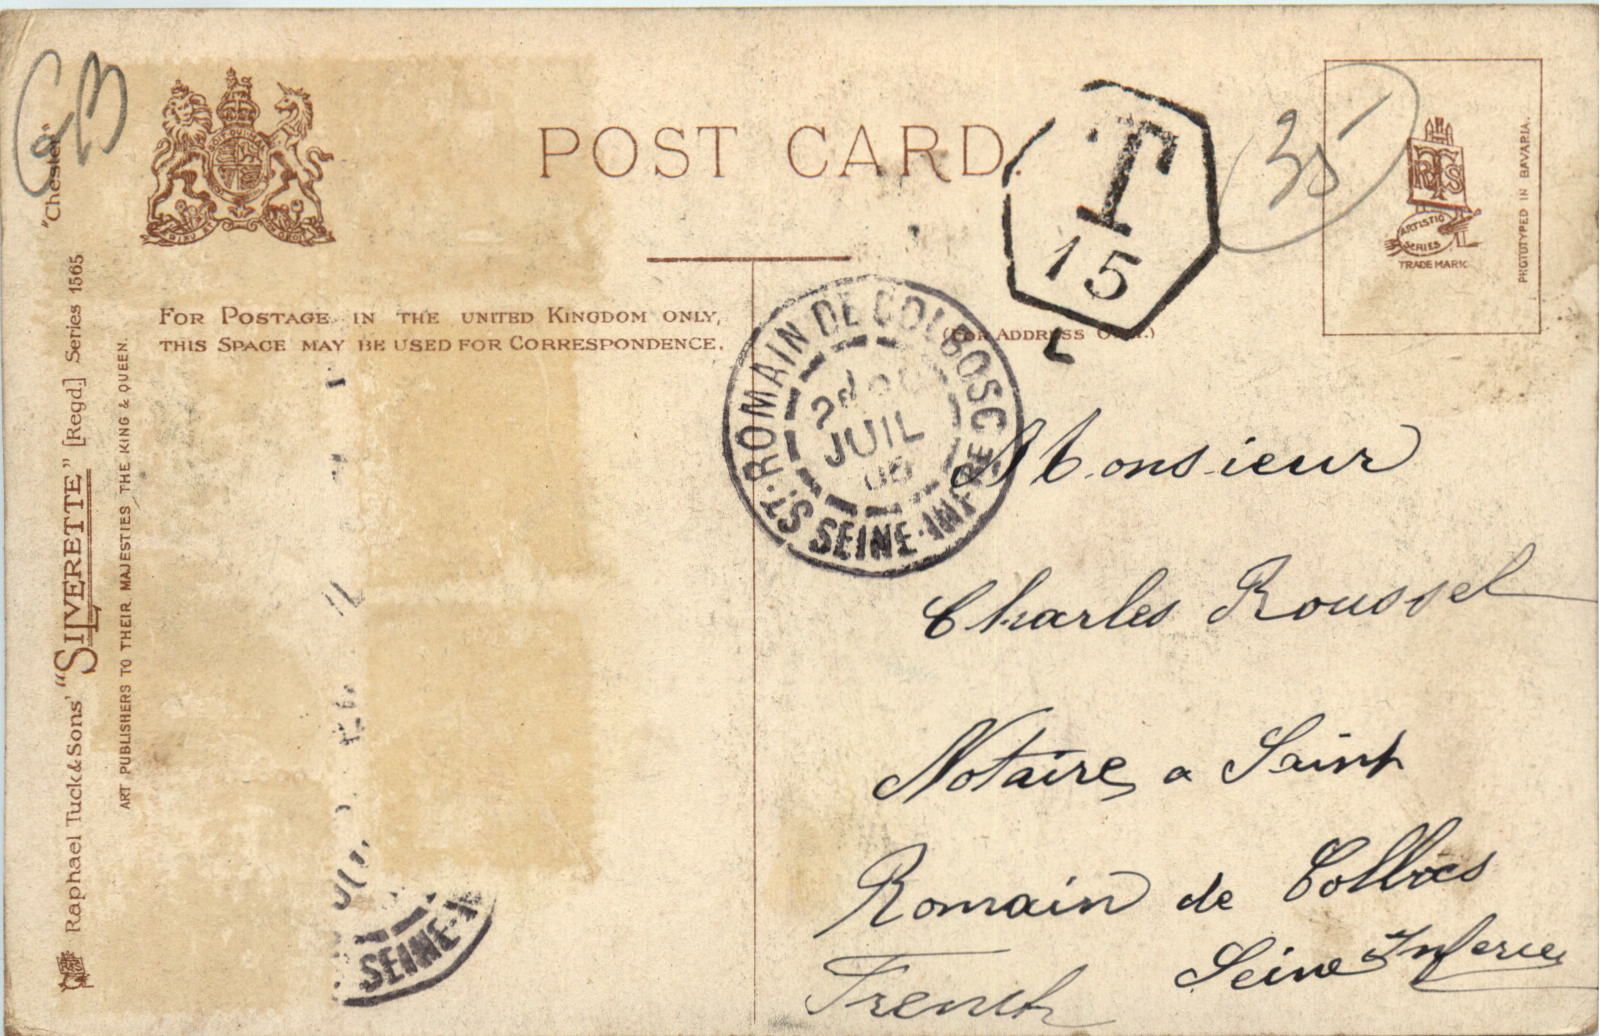 GB
POST CARD.
T
15
L
35
RTS
ARTISTIC
SERIES
TRADE MARK
PHOTOTYPED IN BAVARIA.
FOR POSTAGE IN THE UNITED KINGDOM ONLY,
THIS SPACE MAY BE USED FOR CORRESPONDENCE.
(FOR ADDRESS
"Chester"
Raphael Tuck & Sons' "SILVERETTE" [Regd.] Series 1565
ART PUBLISHERS TO THEIR MAJESTIES THE KING & QUEEN.
ST. ROMAIN DE COLBOSC
JUIL
SEINE-INFRE
Monsieur
Charles Roussel
Notaire a Saint
Romain de Colbocs
Seine
French
SEINE